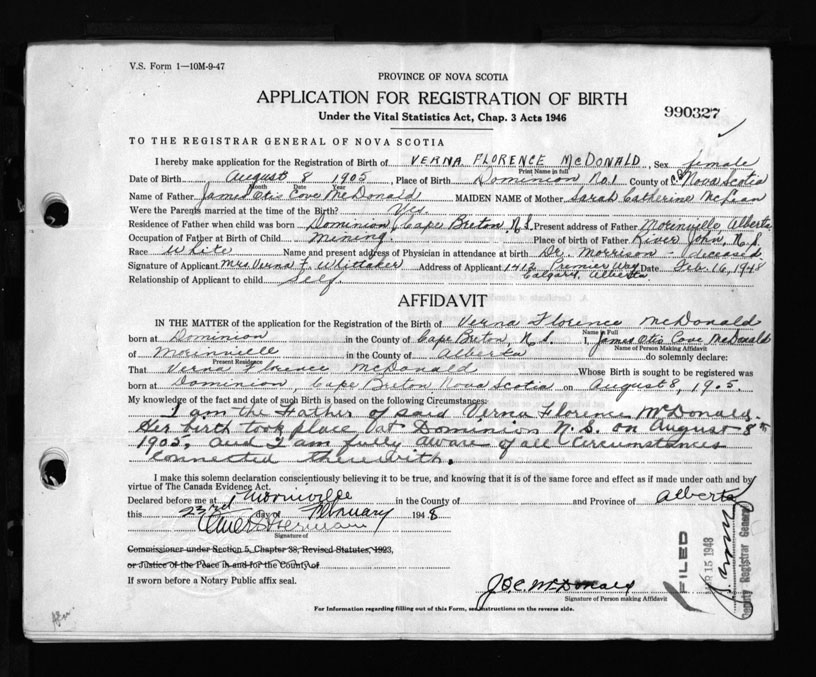 V.S. Form 1—10M-9-47
PROVINCE OF NOVA SCOTIA
APPLICATION FOR REGISTRATION OF BIRTH
Under the Vital Statistics Act, Chap. 3 Acts 1946
990327
TO THE REGISTRAR GENERAL OF NOVA SCOTIA
I hereby make application for the Registration of Birth of VERNA FLORENCE McDONALD, Sex female
Print Name in full
Date of Birth August 8 1905, Place of Birth Dominion No.1 County of C.B. Nova Scotia
Month Date Year
Name of Father James Otis Cove McDonald MAIDEN NAME of Mother Sarah Catherine McLean
Were the Parents married at the time of the Birth? Yes
Residence of Father when child was born Dominion, Cape Breton N.S. Present address of Father Morinville, Alberta
Occupation of Father at Birth of Child Mining Place of birth of Father River John, N.S.
Race White Name and present address of Physician in attendance at birth Dr. Morrison - deceased
Signature of Applicant Mrs. Verna F. Whittaker Address of Applicant 1412 Premier Way Date Feb. 16, 1948
Relationship of Applicant to child Self. Calgary, Alberta.
AFFIDAVIT
IN THE MATTER of the application for the Registration of the Birth of Verna Florence McDonald
Name in Full
born at Dominion in the County of Cape Breton, N.S. I, James Otis Cove McDonald
Name of Person Making Affidavit
of Morinville in the County of Alberta do solemnly declare:
Present Residence
That Verna Florence McDonald Whose Birth is sought to be registered was
born at Dominion, Cape Breton Nova Scotia on August 8, 1905.
My knowledge of the fact and date of such Birth is based on the following Circumstances:
I am the Father of said Verna Florence McDonald.
Her birth took place at Dominion N.S. on August 8th
1905, and I am fully aware of all circumstances
connected therewith.
I make this solemn declaration conscientiously believing it to be true, and knowing that it is of the same force and effect as if made under oath and by
virtue of The Canada Evidence Act.
Declared before me at Morinville in the County of and Province of Alberta
this 23rd day of February 1948
Signature of
Commissioner under Section 5, Chapter 38, Revised Statutes, 1923,
or Justice of the Peace in and for the County of
If sworn before a Notary Public affix seal.
J.O.C. McDonald
Signature of Person making Affidavit
For Information regarding filling out of this Form, see instructions on the reverse side.
FILED
15 1948
Deputy Registrar General